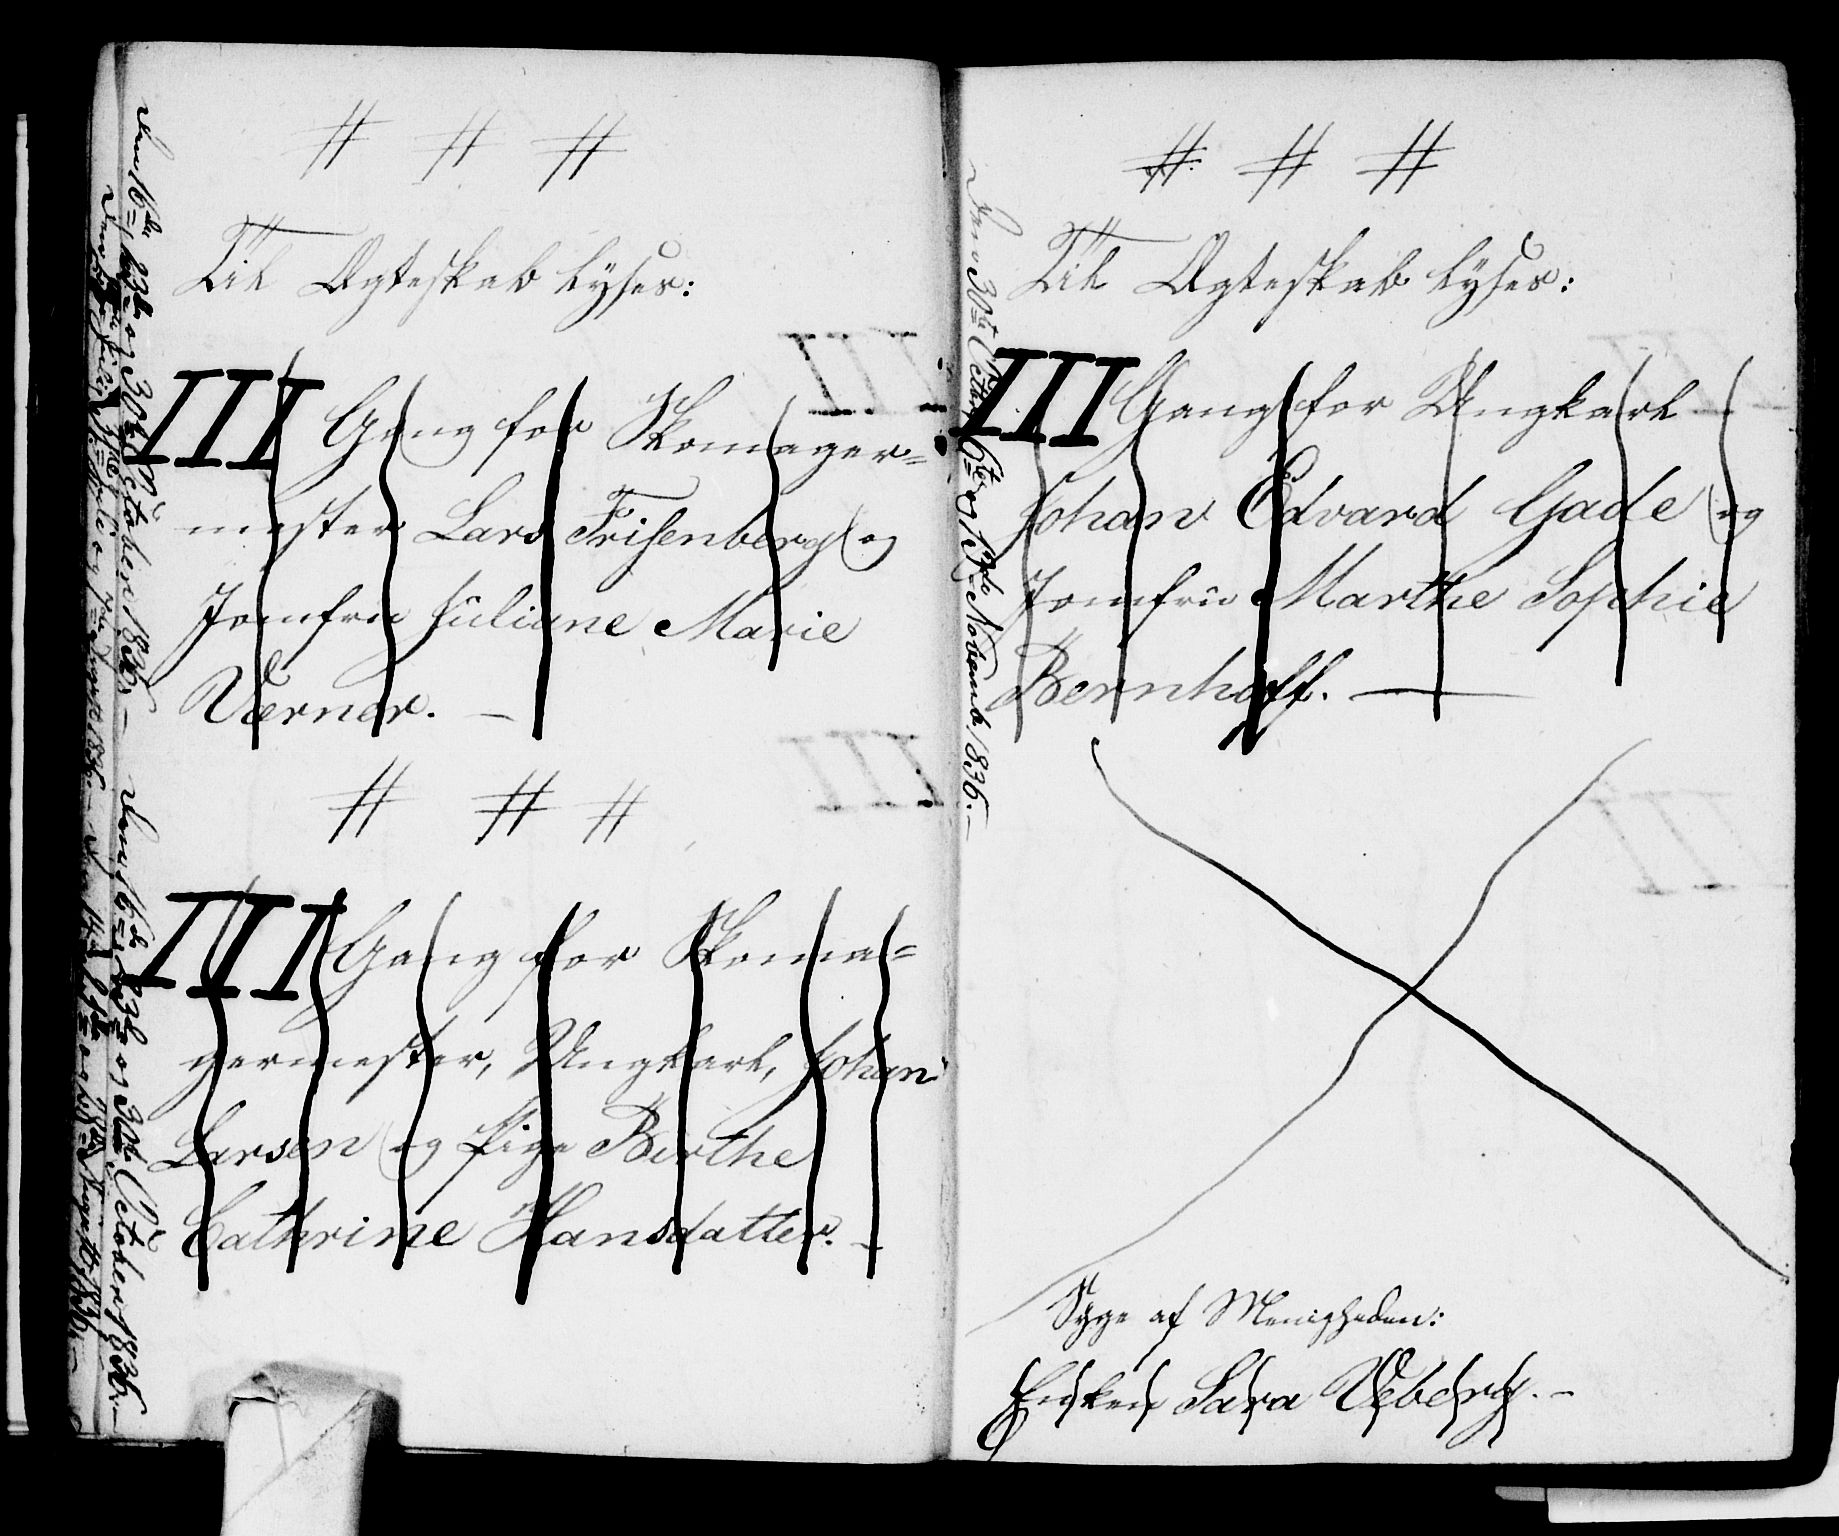 # # #
Til Ægteskab lyses:
III Gang for Skomager=
mester Lars Frisenberg og
Jomfru Juliane Marie
Værner. —
# # #
III Gang for Skoma=
germester, Ungkarl, Johan
Larsen og Pige Birthe
Cathrine Hansdatter. —
Den 16de, 23de og 30te October 1836. —
Den 16de, 23de og 30te October 1836. —
# # #
Til Ægteskab lyses:
III Gang for Ungkarl
Johan Edvard Gade og
Jomfru Marthe Sophie
Bernhoff. —
Den 30te October, 6te og 13de Novemb. 1836. —
Syge af Menigheden:
Enken Sara Veberg. —